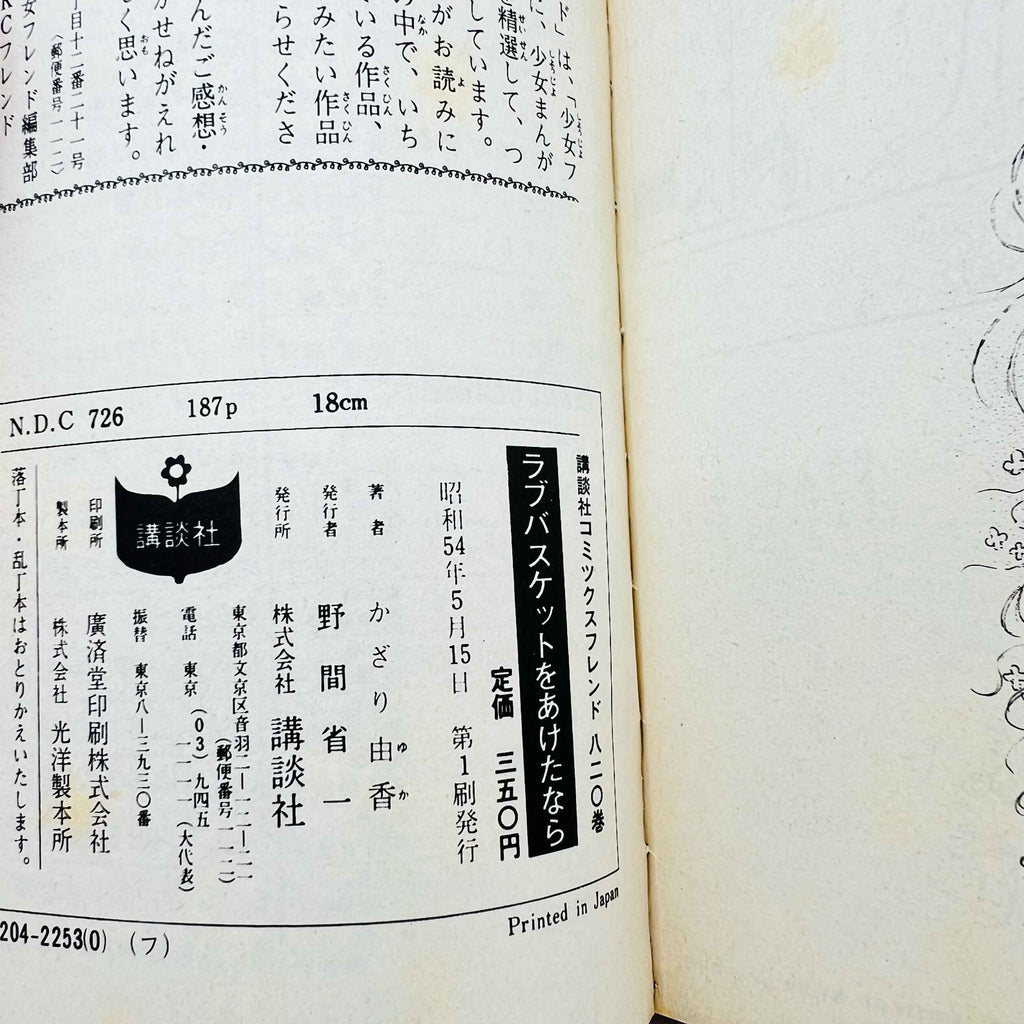 ド」は、「少女フ
に、少女まんが
精選して、つ
しています。
がお読みに
の中で、いち
いる作品、
みたい作品
らせくださ
んだご感想・
かせねがえれ
く思います。
丁目十二番二十一号
〈郵便番号一一二〉
女フレンド編集部
KCフレンド
N.D.C 726 187p 18cm
講談社コミックスフレンド 八二〇巻
ラブバスケットをあけたなら
定価 三五〇円
昭和54年5月15日 第1刷発行
著者 かざり由香
発行者 野間省一
発行所 株式会社 講談社
東京都文京区音羽二—一二—二一
(郵便番号一一二)
電話 東京(03)九四五
一一一一(大代表)
振替 東京八—三九三〇番
講談社
印刷所 廣済堂印刷株式会社
製本所 株式会社 光洋製本所
落丁本・乱丁本はおとりかえいたします。
204-2253(0) (フ)
Printed in Japan